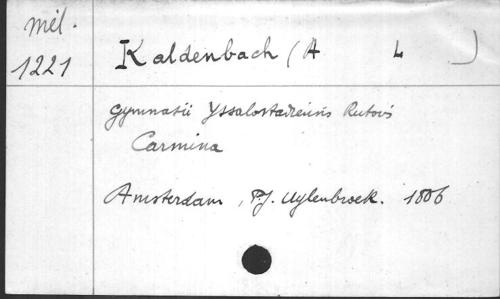 mél.
1221
Kaldenbach (A L )
Gymnasii Yssalostadiensis Rectoris
Carmina
Amsterdam, P.J. Uylenbroek. 1806